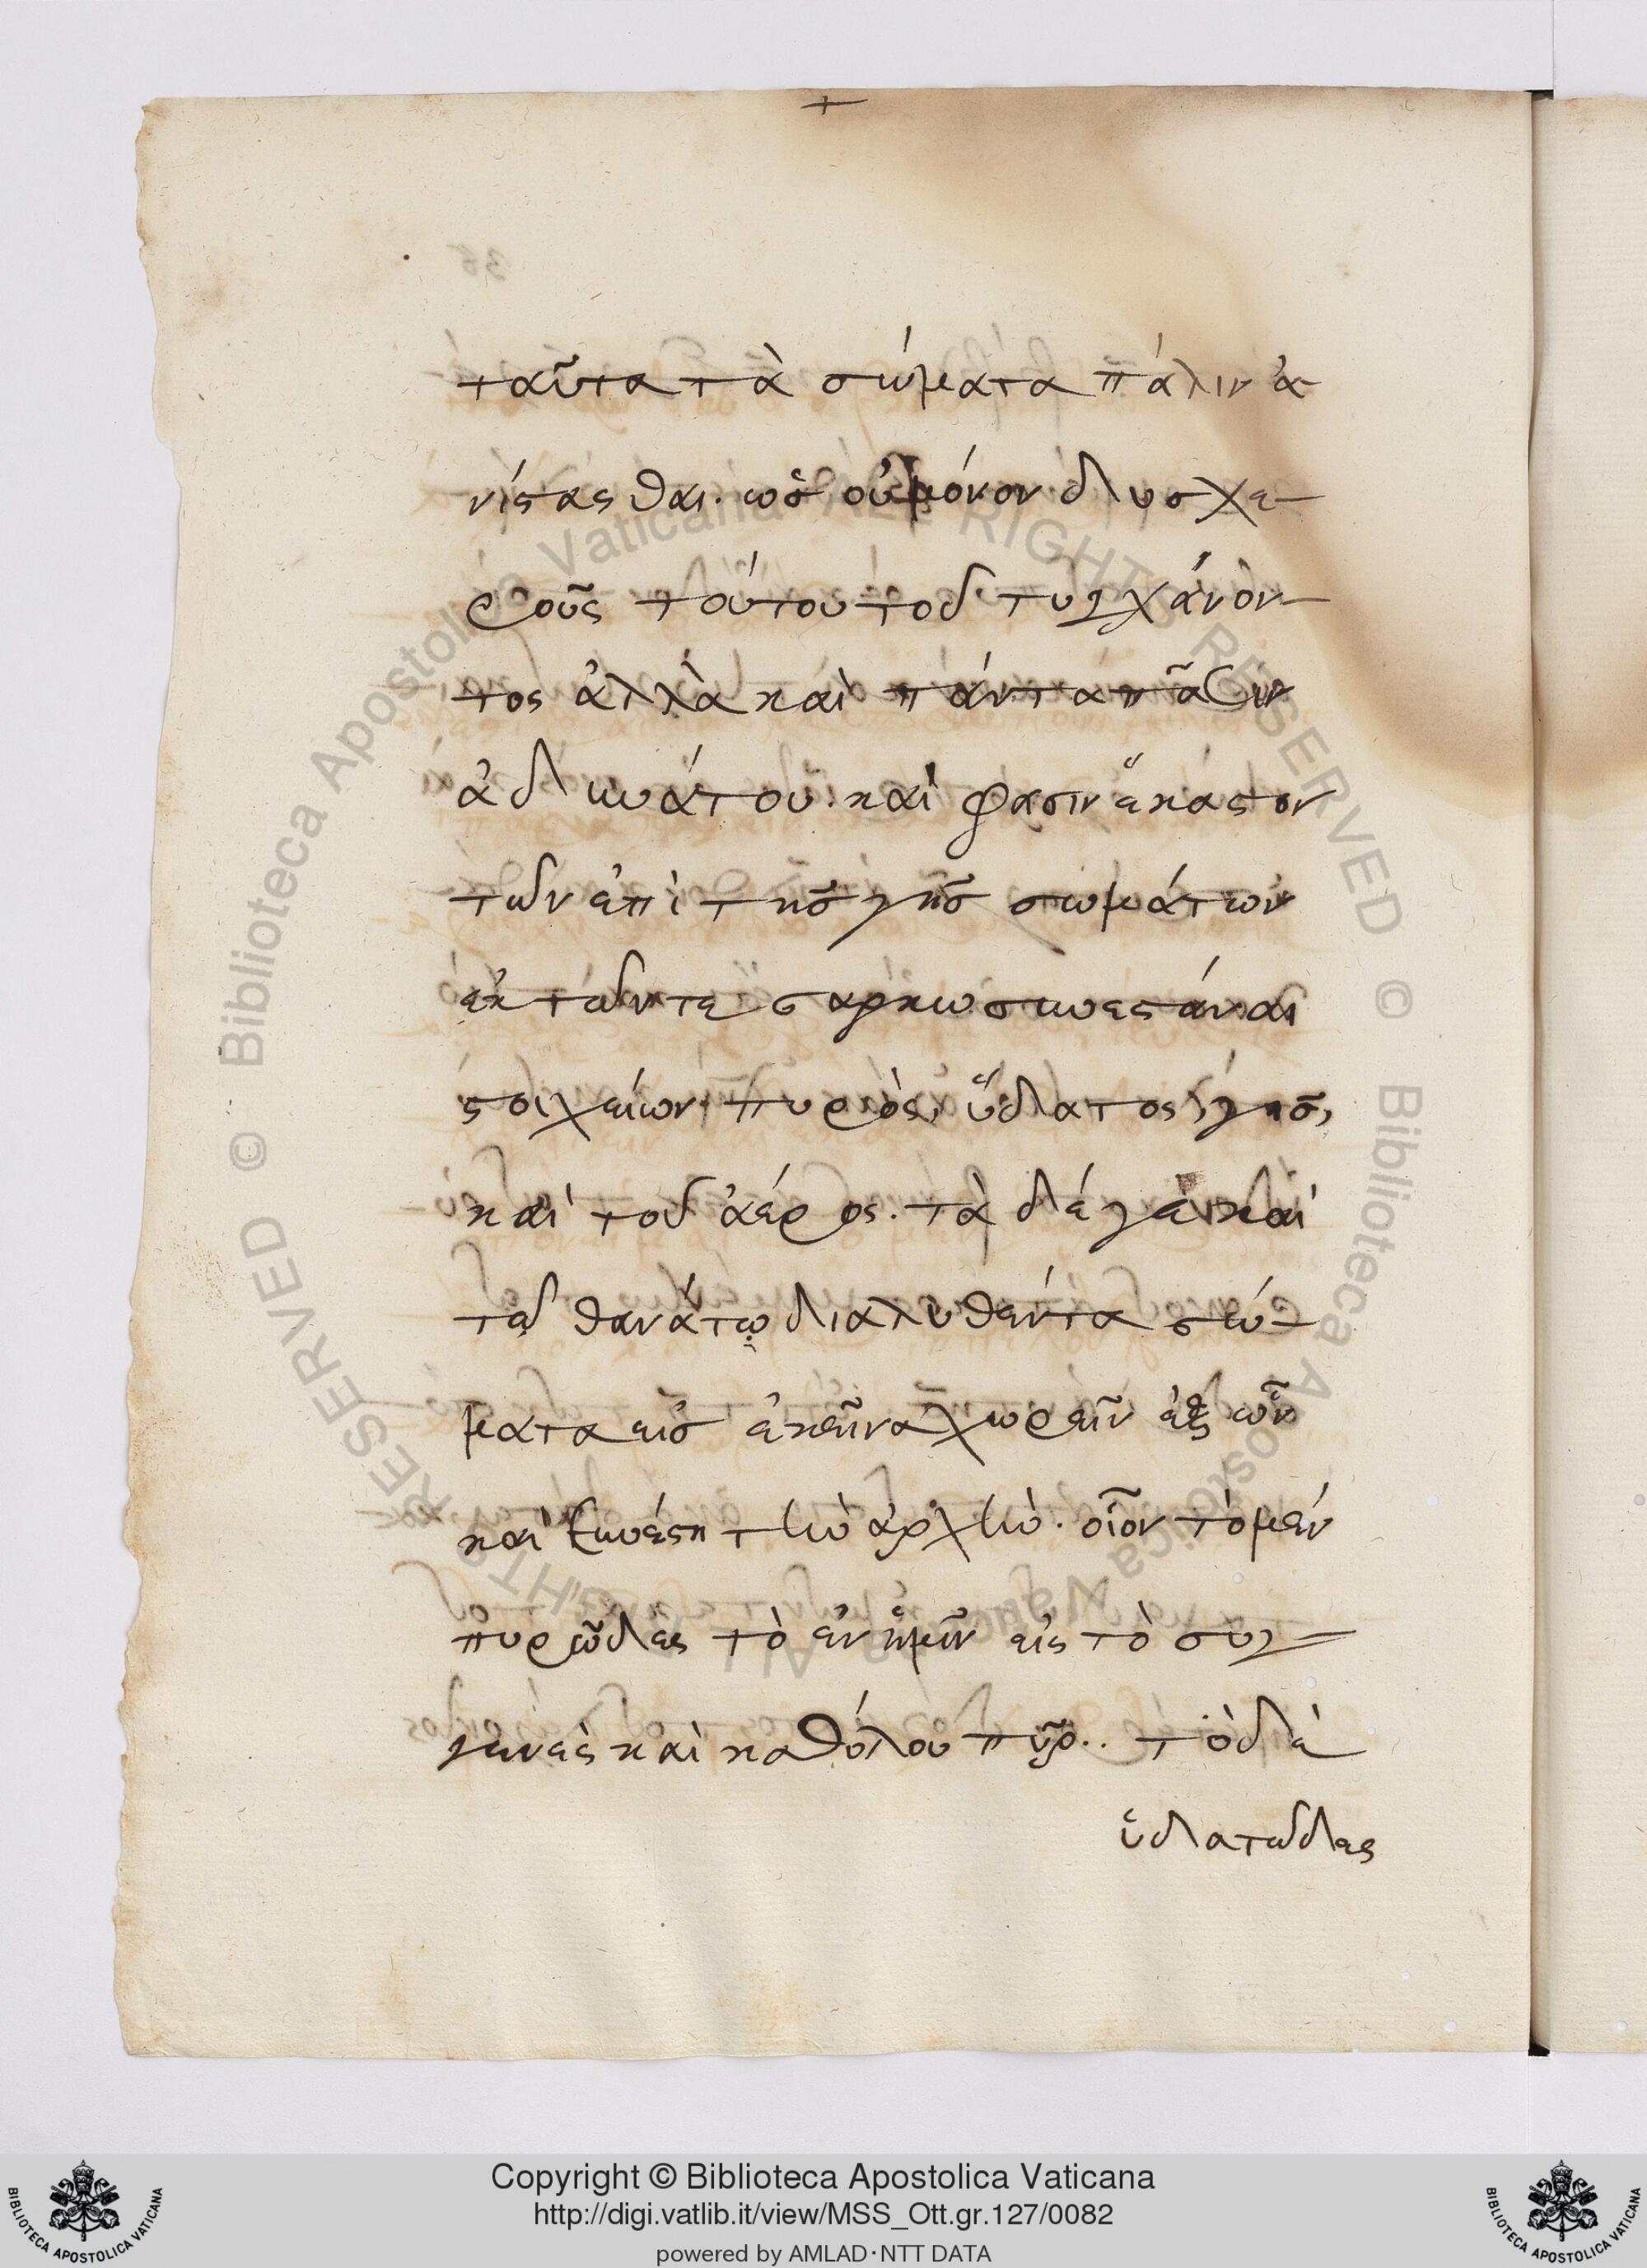 ταῦτα τὰ σώματα πάλιν ἀ-
νίστασθαι. ὡς οὐ μόνον δυσχε-
ροῦς τούτου τοῦ τυγχάνον-
τος ἀλλὰ καὶ πάντα πᾶσιν
ἀδυνάτου. καὶ φασιν ἕκαστον
τῶν ἐπὶ τῆς γῆς σωμάτων
ἐκ τῶν τεσσάρων συνεστάναι
στοιχείων πυρὸς, ὕδατος, γῆς,
καὶ τοῦ ἀέρος. τὰ δέ γε καὶ
τῷ θανάτῳ διαλυθέντα σώ-
ματα εἰς ἐκεῖνα χωρεῖν ἐξ ὧν
καὶ συνέστη τὴν ἀρχὴν. οἷον τὸ μὲν
πυρῶδες τὸ ἐν ἡμῖν εἰς τὸ συγ-
γενὲς καὶ καθόλου πῦρ. τὸ δὲ
ὑδατῶδες
38
© Biblioteca Apostolica Vaticana ALL RIGHTS RESERVED
Copyright © Biblioteca Apostolica Vaticana
http://digi.vatlib.it/view/MSS_Ott.gr.127/0082
powered by AMLAD·NTT DATA
BIBLIOTECA APOSTOLICA VATICANA
BIBLIOTECA APOSTOLICA VATICANA